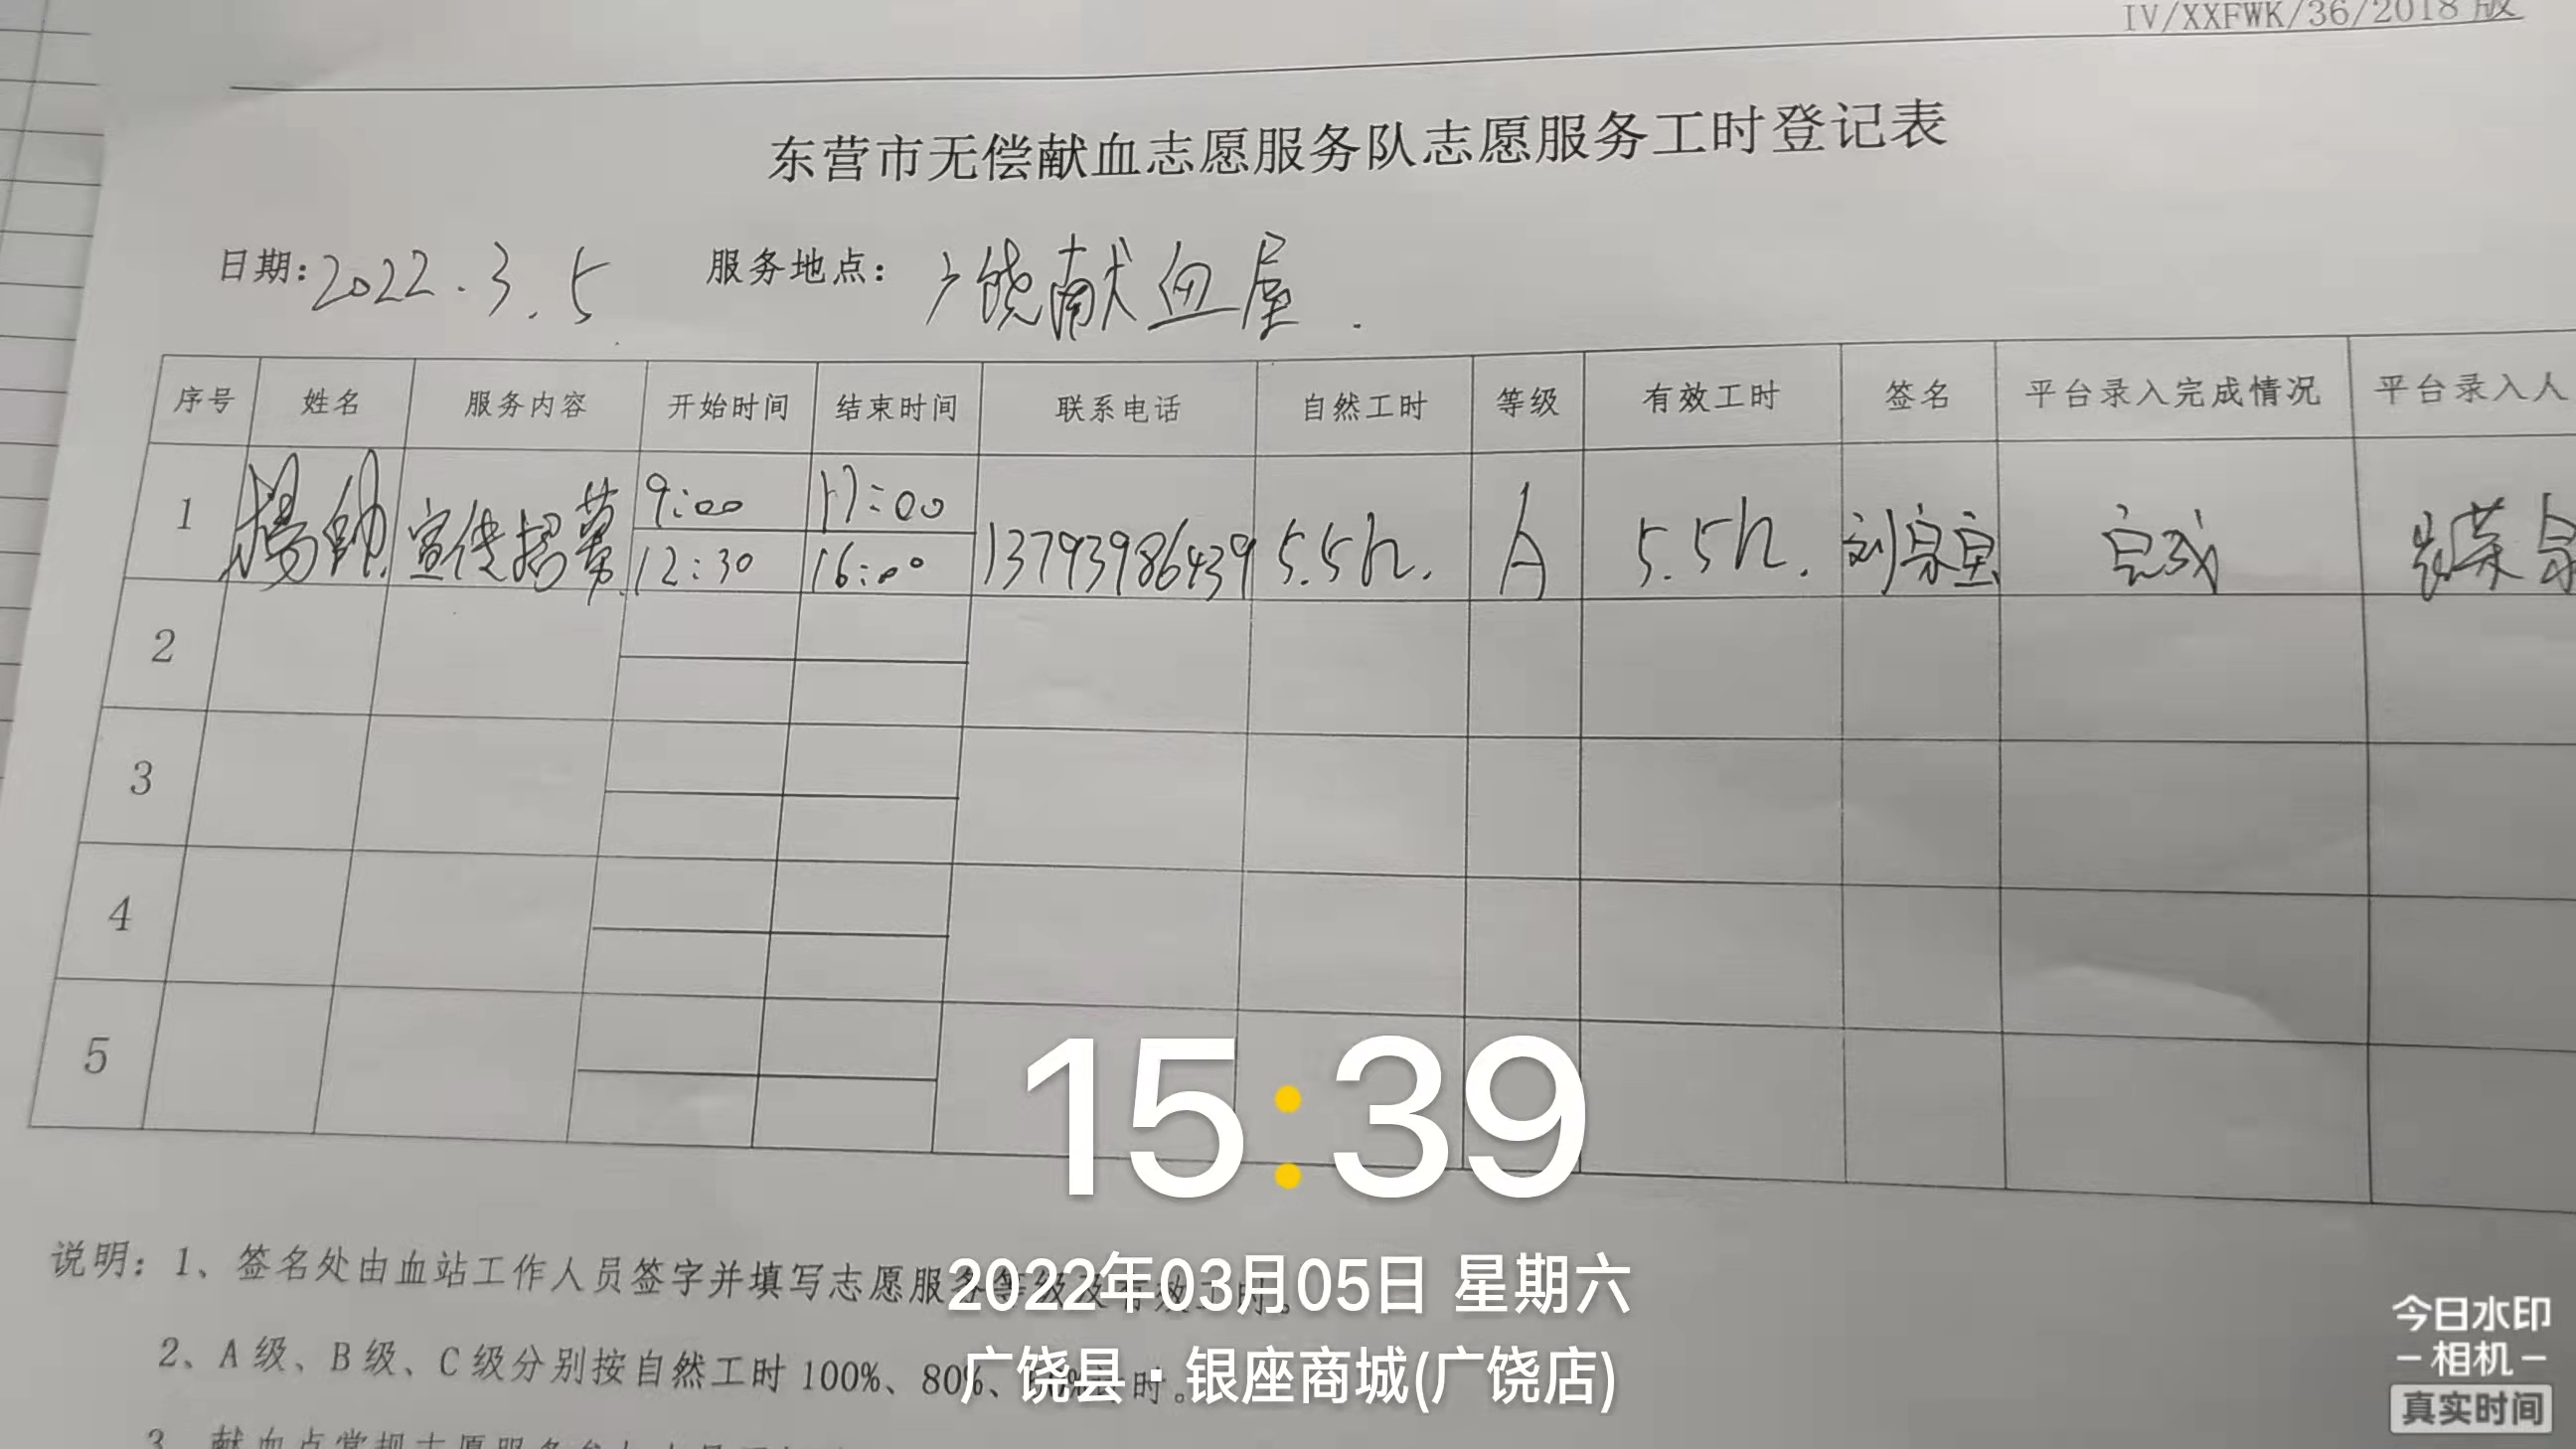 IV/XXFWK/36/2018版
东营市无偿献血志愿服务队志愿服务工时登记表
日期:2022.3.5 服务地点:广饶献血屋.
序号 姓名 服务内容 开始时间 结束时间 联系电话 自然工时 等级 有效工时 签名 平台录入完成情况 平台录入人
1 杨帅 宣传招募 9:00 17:00 13793986439 5.5h. A 5.5h. 刘宗宝 完成
12:30 16:00
2
3
4
5
15:39
说明:1、签名处由血站工作人员签字并填写志愿服务等级及有效工时。
2022年03月05日 星期六
2、A级、B级、C级分别按自然工时100%、80%、
广饶县·银座商城(广饶店)
今日水印
相机
真实时间